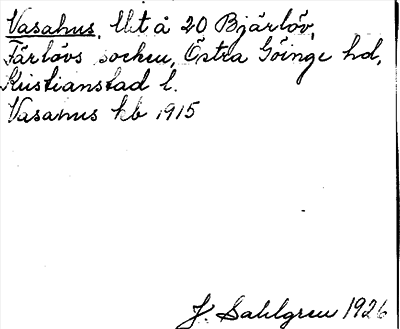 Vasahus, lht å 20 Bjärlöv,
Färlövs socken, Östra Göinge hd,
Kristianstad l.
Vasahus kb 1915
J. Sahlgren 1926